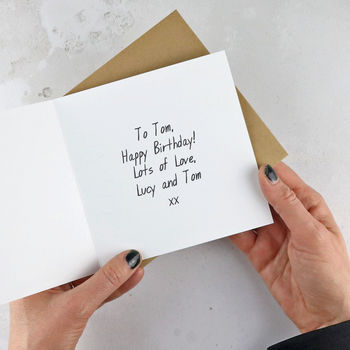 To Tom,
Happy Birthday!
Lots of Love,
Lucy and Tom
xx